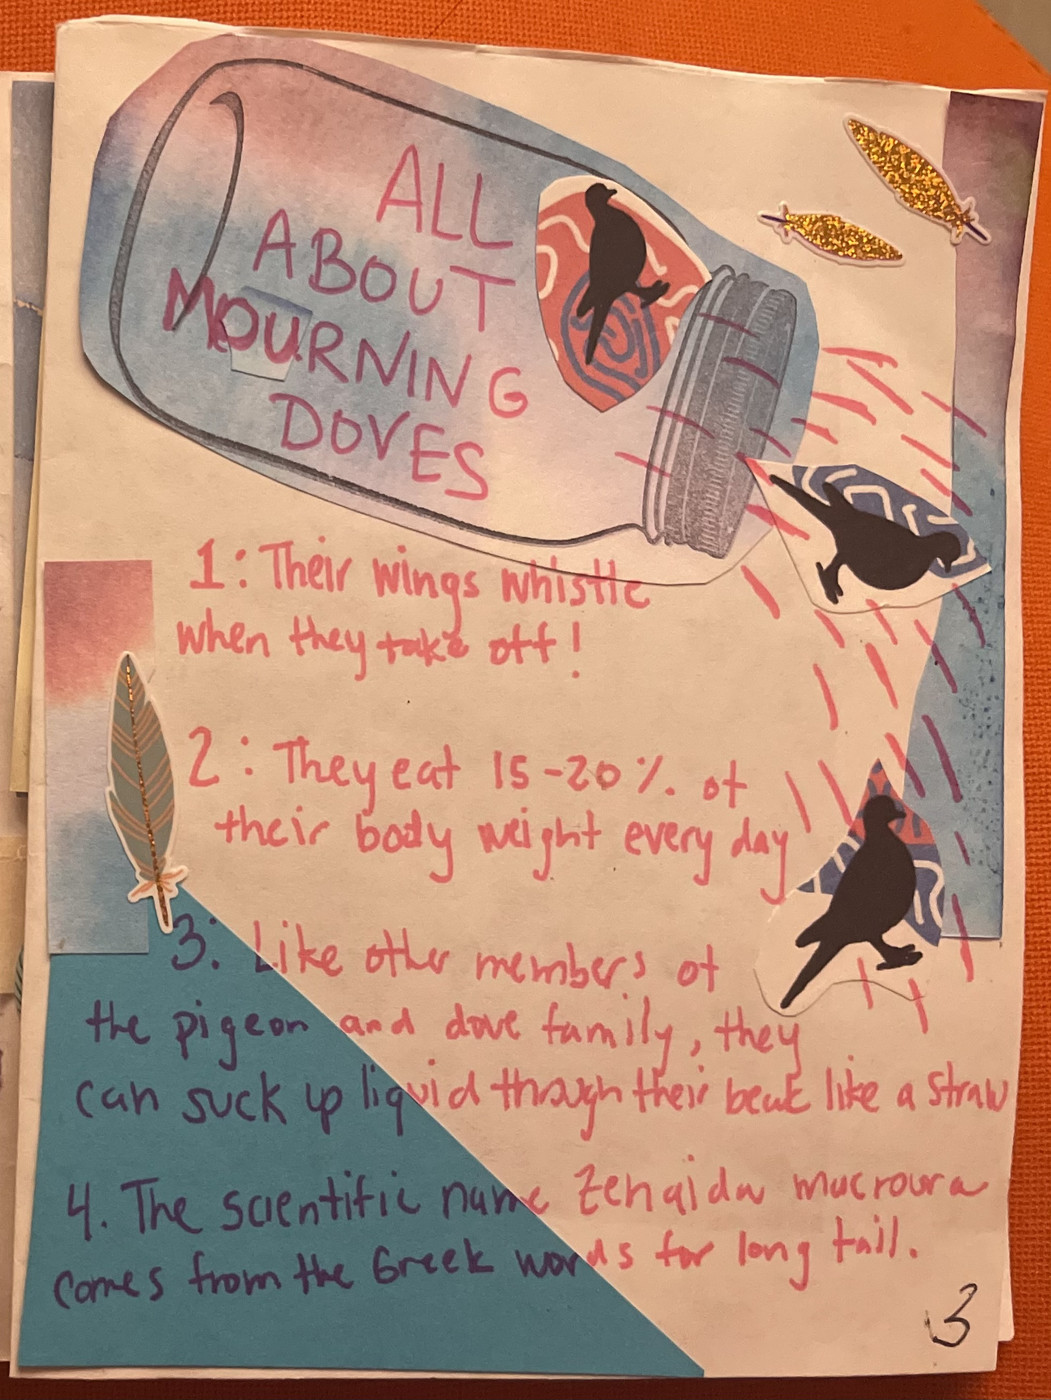 ALL
ABOUT
MOURNING
DOVES
1: Their wings whistle
when they take off!
2: They eat 15-20% of
their body weight every day
3: Like other members of
the pigeon and dove family, they
can suck up liquid through their beak like a straw
4. The scientific name Zenaida macroura
comes from the Greek words for long tail.
3